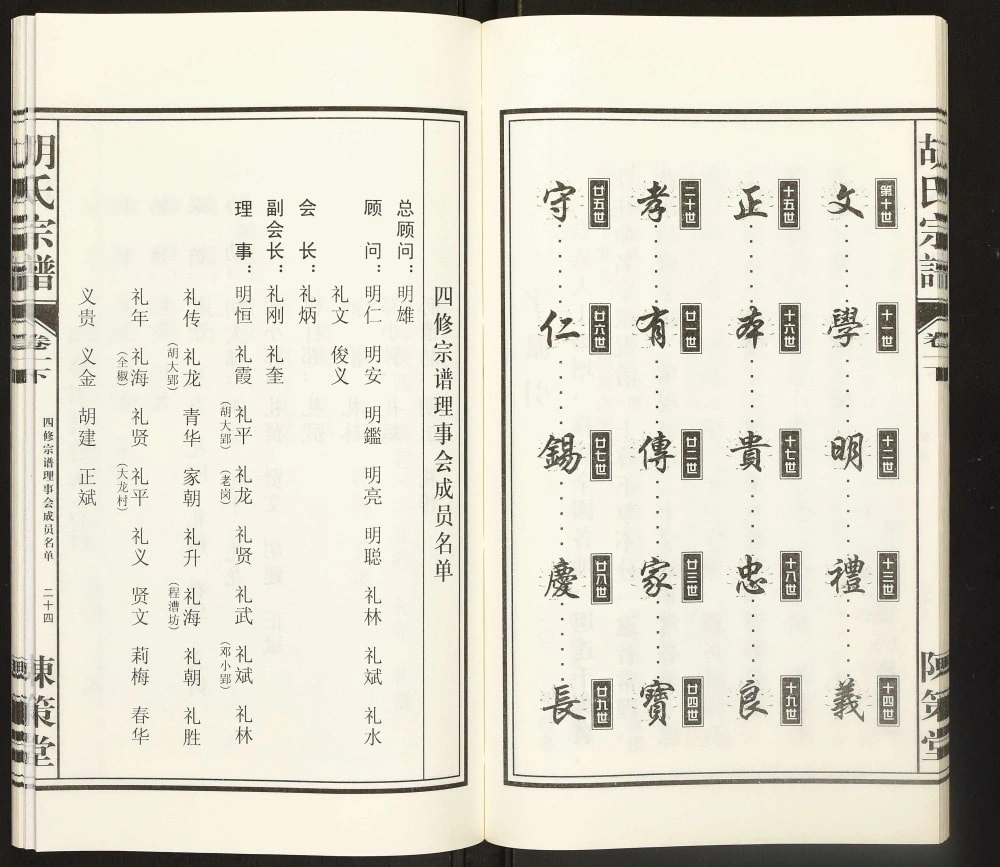 胡氏宗譜
卷一下
陳策堂
第十世 文
十一世 學
十二世 明
十三世 禮
十四世 義
十五世 正
十六世 本
十七世 貴
十八世 忠
十九世 良
二十世 孝
廿一世 有
廿二世 傳
廿三世 家
廿四世 寶
廿五世 守
廿六世 仁
廿七世 錫
廿八世 慶
廿九世 長
四修宗谱理事会成员名单
总顾问：明雄
顾问：明仁 明安 明鑑 明亮 明聪 礼林 礼斌 礼水
礼文 俊义
会长：礼炳
副会长：礼刚 礼奎
理事：明恒 礼霞 礼平（胡大郢） 礼龙（老岗） 礼贤 礼武 礼斌（邓小郢） 礼林
礼传 礼龙（胡大郢） 青华 家朝 礼升 礼海（程漕坊） 礼朝 礼胜
礼年 礼海（全椒） 礼贤 礼平（大龙村） 礼义 贤文 莉梅 春华
义贵 义金 胡建 正斌
胡氏宗譜
卷一下
四修宗谱理事会成员名单 二十四
陳策堂